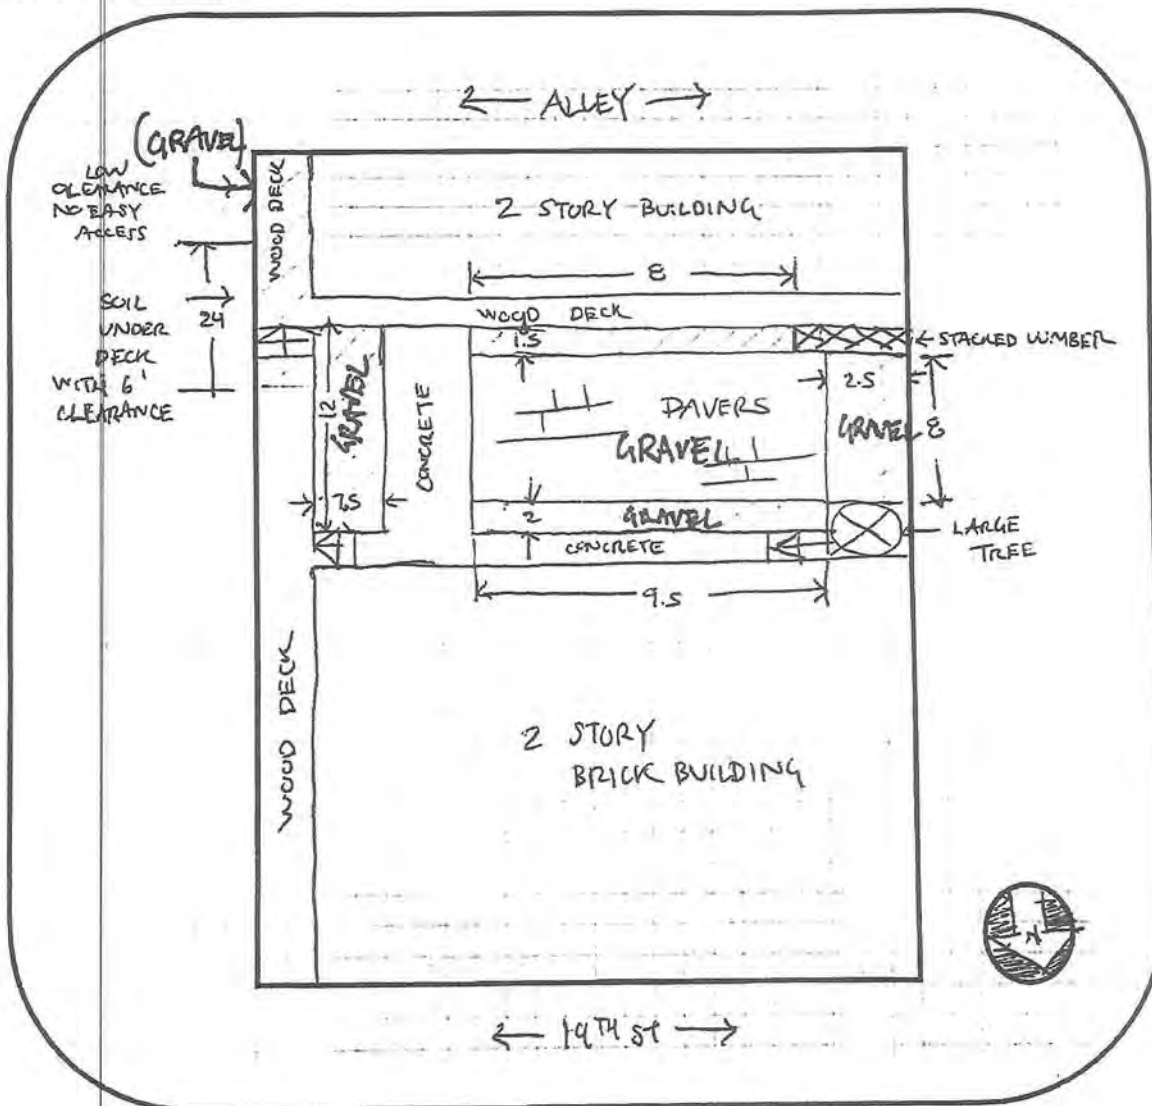 ← ALLEY →
(GRAVEL)
LOW
CLEARANCE
NO EASY
ACCESS
WOOD DECK
2 STORY BUILDING
8
SOIL
UNDER
DECK
WITH 6'
CLEARANCE
24
WOOD DECK
1.5
STACKED LUMBER
12
GRAVEL
7.5
CONCRETE
PAVERS
GRAVEL
2.5
GRAVEL
8
2
GRAVEL
CONCRETE
LARGE
TREE
9.5
WOOD DECK
2 STORY
BRICK BUILDING
N
← 19TH ST →